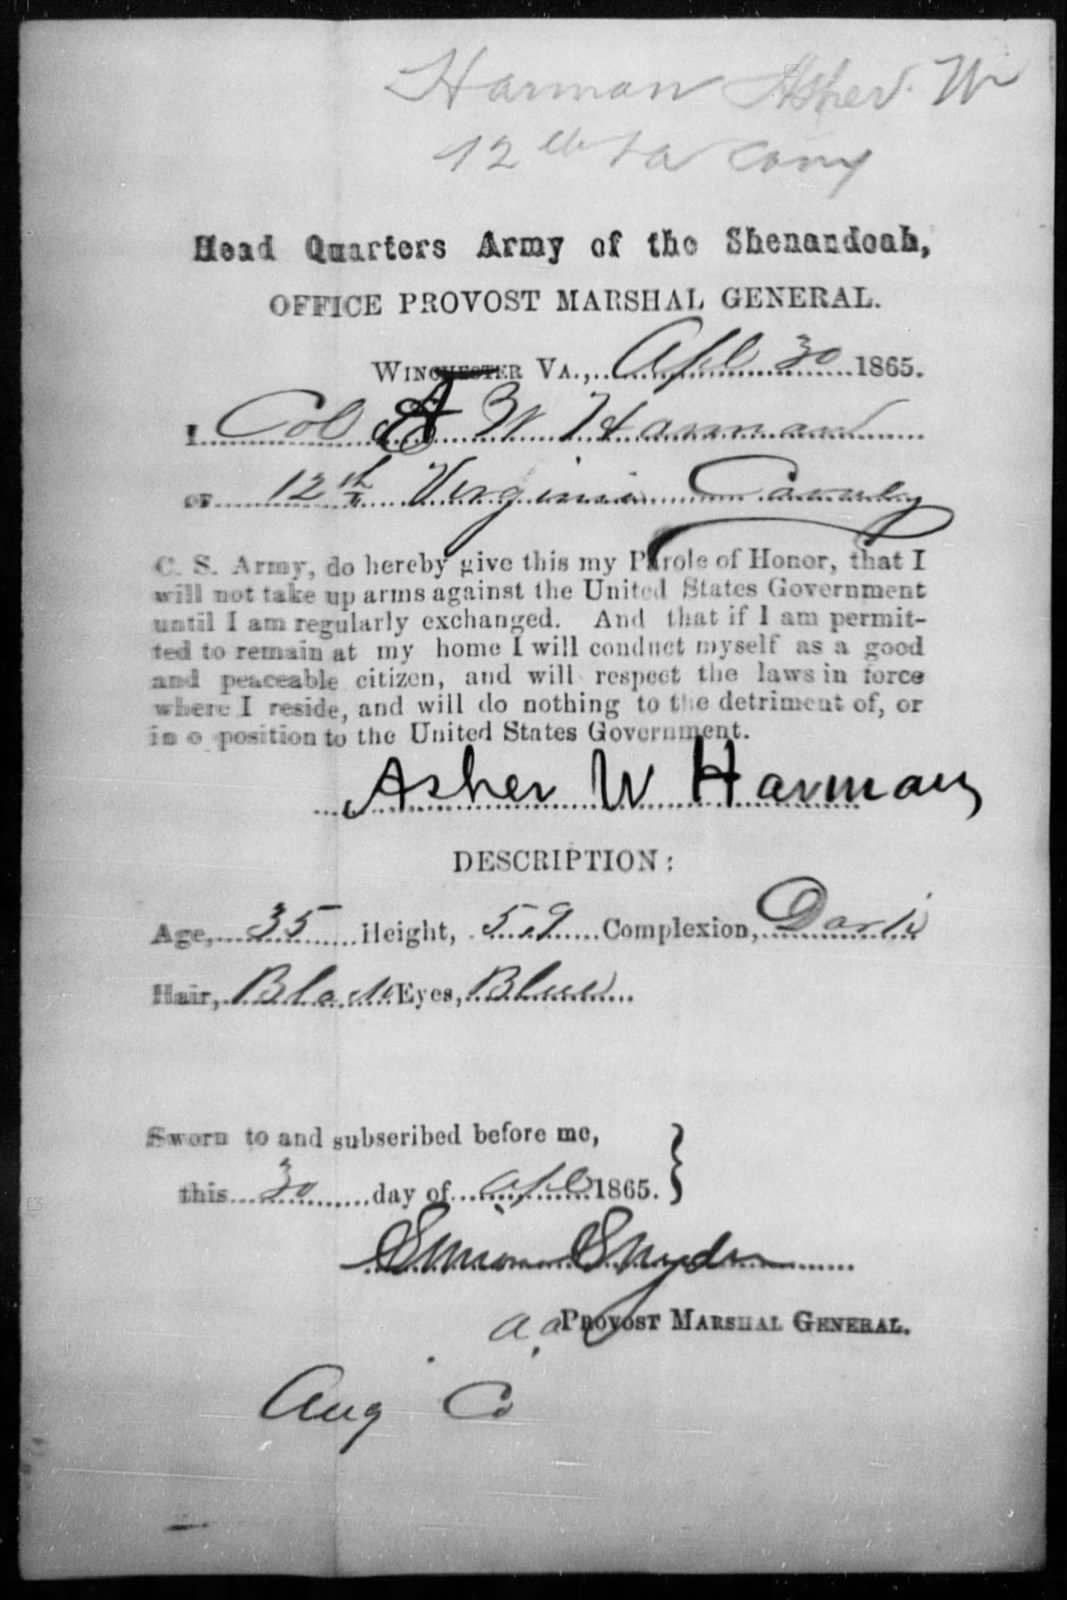 Harman Asher. W
12th Va Cavy
Head Quarters Army of the Shenandoah,
OFFICE PROVOST MARSHAL GENERAL.
WINCHESTER VA., Apl 30 1865.
I Col A W Harman
OF 12th Virginia Cavalry
C. S. Army, do hereby give this my Parole of Honor, that I
will not take up arms against the United States Government
until I am regularly exchanged. And that if I am permit-
ted to remain at my home I will conduct myself as a good
and peaceable citizen, and will respect the laws in force
where I reside, and will do nothing to the detriment of, or
in o position to the United States Government.
Asher W Harman
DESCRIPTION:
Age, 35 Height, 5.9 Complexion, Dark
Hair, Black Eyes, Blue
Sworn to and subscribed before me, }
this 30 day of Apl 1865.
Simon Snyder
PROVOST MARSHAL GENERAL.
Aug Co